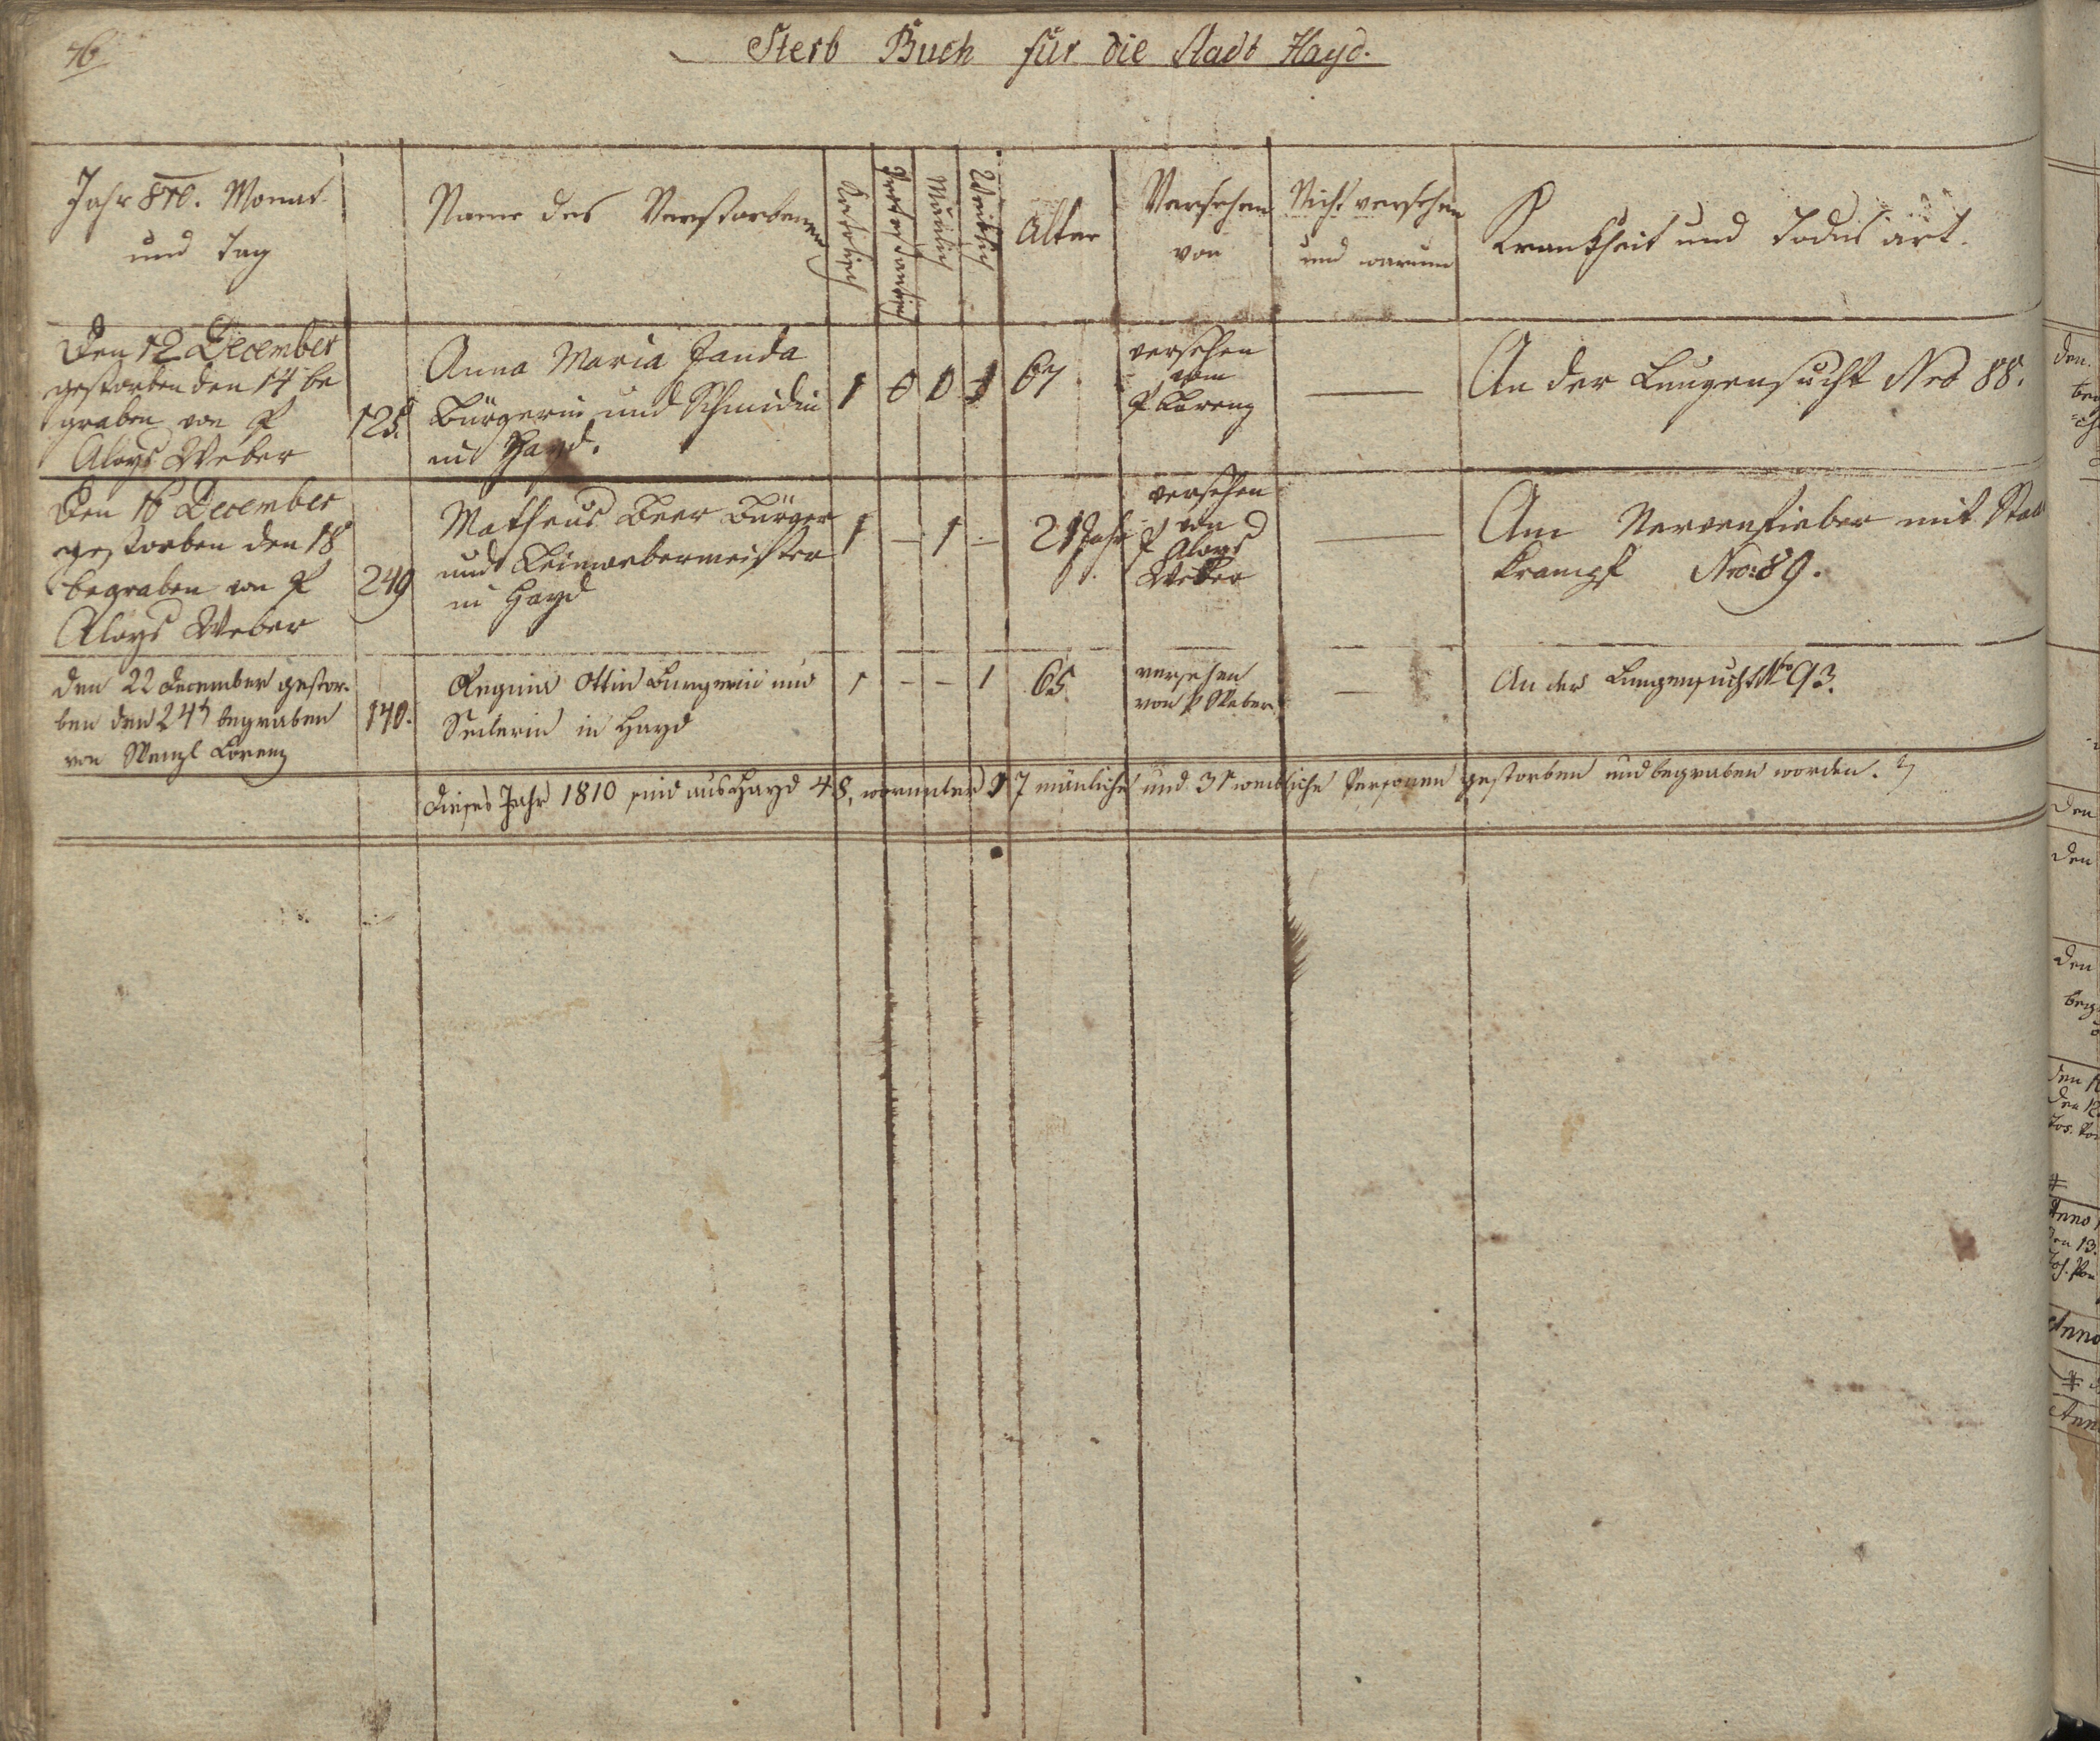 46
Sterb Buch für die Stadt Hayd.
Jahr 810. Monat
und Tag
Name des Verstorbenen
Katholisch
Protestantisch
Mänlich
Weiblich
Alter
Versehen
von
Nicht versehen
und warum
Krankheit und Todes art.
Den 12 December
gestorben den 14 be
graben von P
Aloys Weber
125.
Anna Maria Janda
Bürgerin und Schmidin
in Hayd.
1 0 0 1
67
versehen
vom
P Lorenz
An der Lungensucht Nro 88.
Den 16 December
gestorben den 18
begraben von P
Aloys Weber
249
Matheus Beer Bürger
und Leinwebermeister
in Hayd
1 – 1 –
21 Jahr
versehen
von
P Aloys
Weber
Am Nervenfieber mit
Krampf Nro: 89.
den 22 December gestor-
ben den 24t begraben
von Wenzl Lorenz
140.
Regina Ottin Burgerin und
Seilerin in Hayd
1 – – 1
65
versehen
von P Weber
An der Lungensucht Nro 93.
Dieses Jahr 1810 sind aus Hayd 48, worunter 17 mänliche und 31 weibliche Personen gestorben und begraben worden.
den
den
den
den
Anno
den 13.
Anno